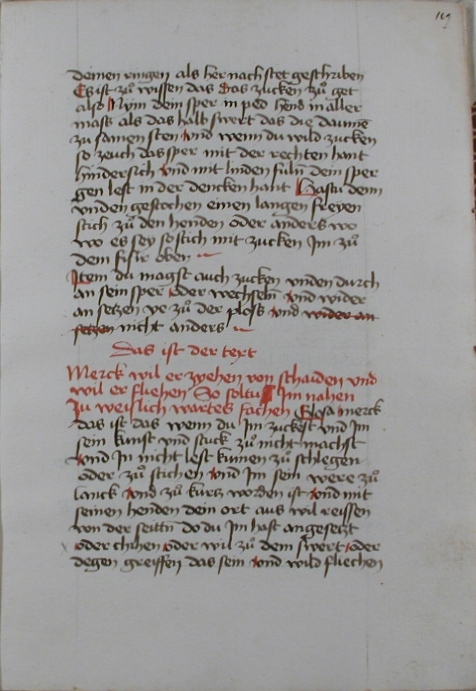 169
deinen ringen als her nach stet geschriben
Es ist zů wissen das Das zucken zů get
also Nym dein sper in ped hend in aller
mass als das halb swert das die daume
zů samen sten vnd wenn du wild zucken
so zeuch das sper mit der rechten hant
hindersich vnd mit linden fuln dein sper
gen lest in der dencken hant Hastu denn
vnden gestochen einen langen freyen
stich zů den henden oder anders wo
wo es sey so stich mit zucken Im zů
dem fisir oben
Item du magst auch zucken vnden durch
an sein sper oder wechseln vnd wider
an setzen ye zů der ploss vnd wider an
setzen nicht anders
Das ist der text
Merck wil er zyehen von schaiden vnd
wil er fliehen So soltu Im nahen
Zu weislich wartes fachen Glosa merck
das ist das wenn du Im zuckest vnd Im
sein kunst vnd stuck zů nicht machst
vnd In nicht lest kumen zů schlegen
oder zů stichen vnd Im sein were zů
lanck vnd zů kurz worden ist vnd mit
seinen henden dein ort aus wil reissen
von der seittn do du Im hast angesetzt
oder wil zů dem swert oder
degen greiffen das sein vnd wild fliechen